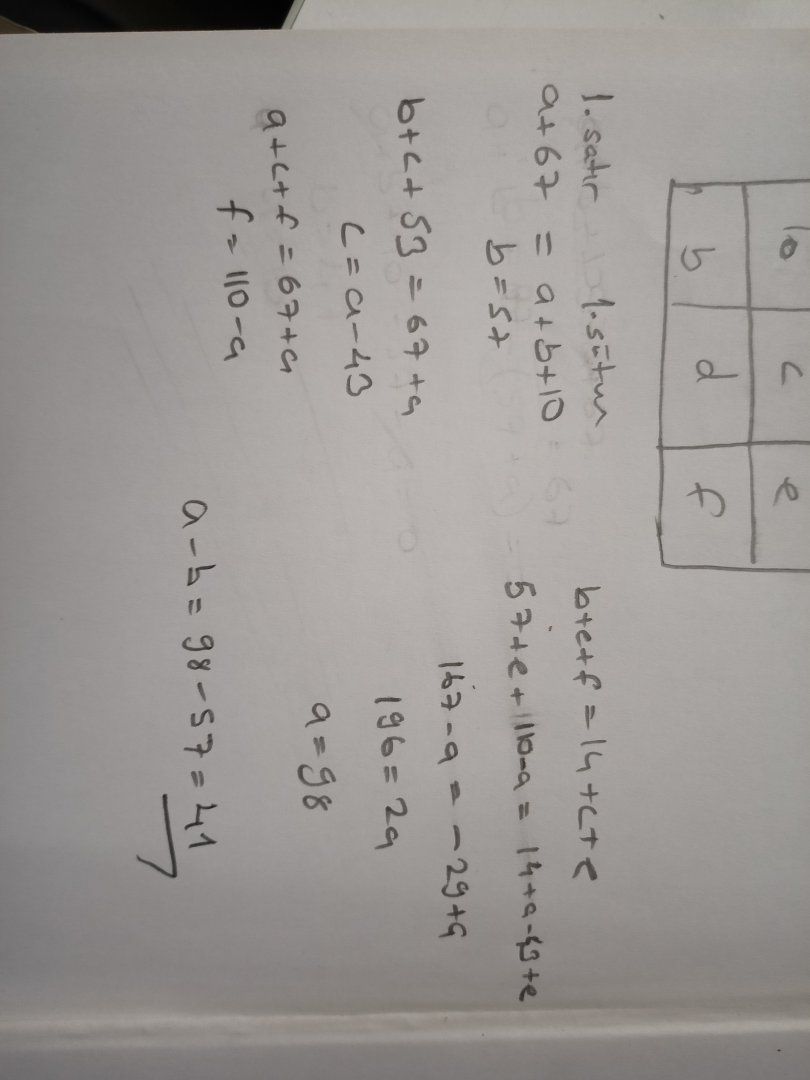 10 c e
b d f
1. satır 1. sütun
a+67 = a+b+10
b=57
b+c+53=67+a
c=a-43
a+c+f=67+a
f=110-a
b+e+f=14+c+e
57+e+110-a=14+a-43+e
167-a=-29+a
196=2a
a=98
a-b=98-57=41